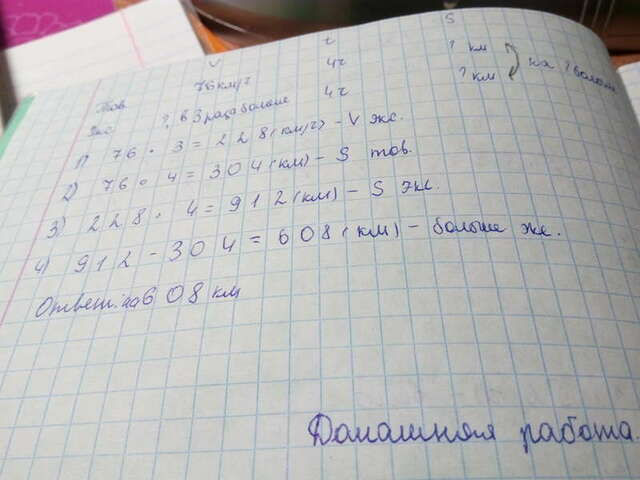 v t S
Тов. 76 км/ч 4 ч ? км
Экс. ?, в 3 раза больше 4 ч ? км на ? больше
1) 76 · 3 = 228 (км/ч) - V экс.
2) 76 · 4 = 304 (км) - S тов.
3) 228 · 4 = 912 (км) - S экс.
4) 912 - 304 = 608 (км) - больше экс.
Ответ: на 608 км
Домашняя работа.